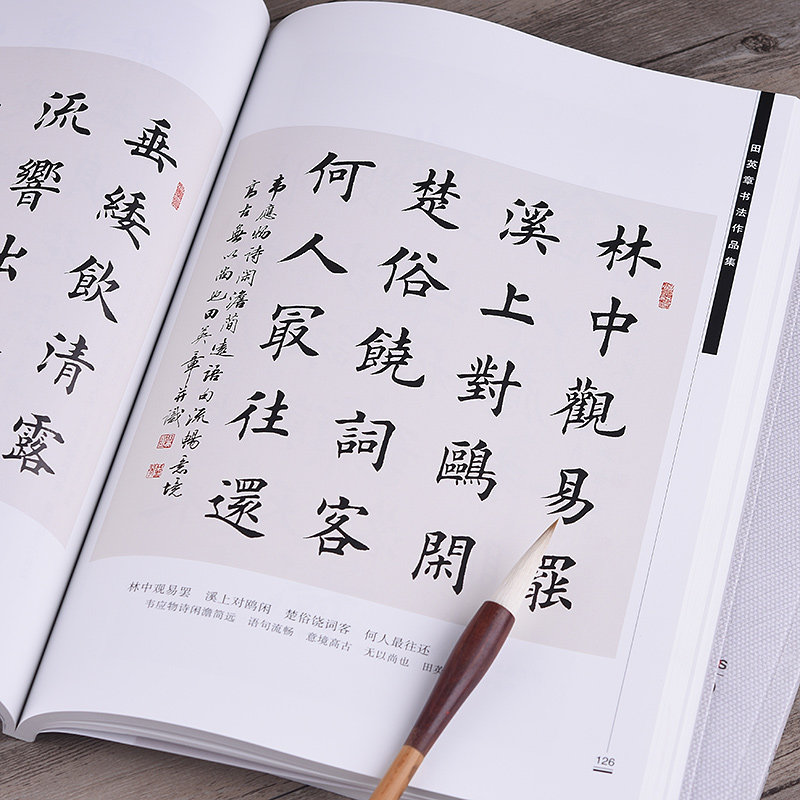 垂緌飲清露
流響出
田英章书法作品集
林中觀易罷
溪上對鷗閑
楚俗饒詞客
何人冣往還
韦應物诗闲澹簡遠语句流暢意境
高古無以尚也田英章并識
林中观易罢 溪上对鸥闲 楚俗饶词客 何人最往还
韦应物诗闲澹简远 语句流畅 意境高古 无以尚也 田英
126